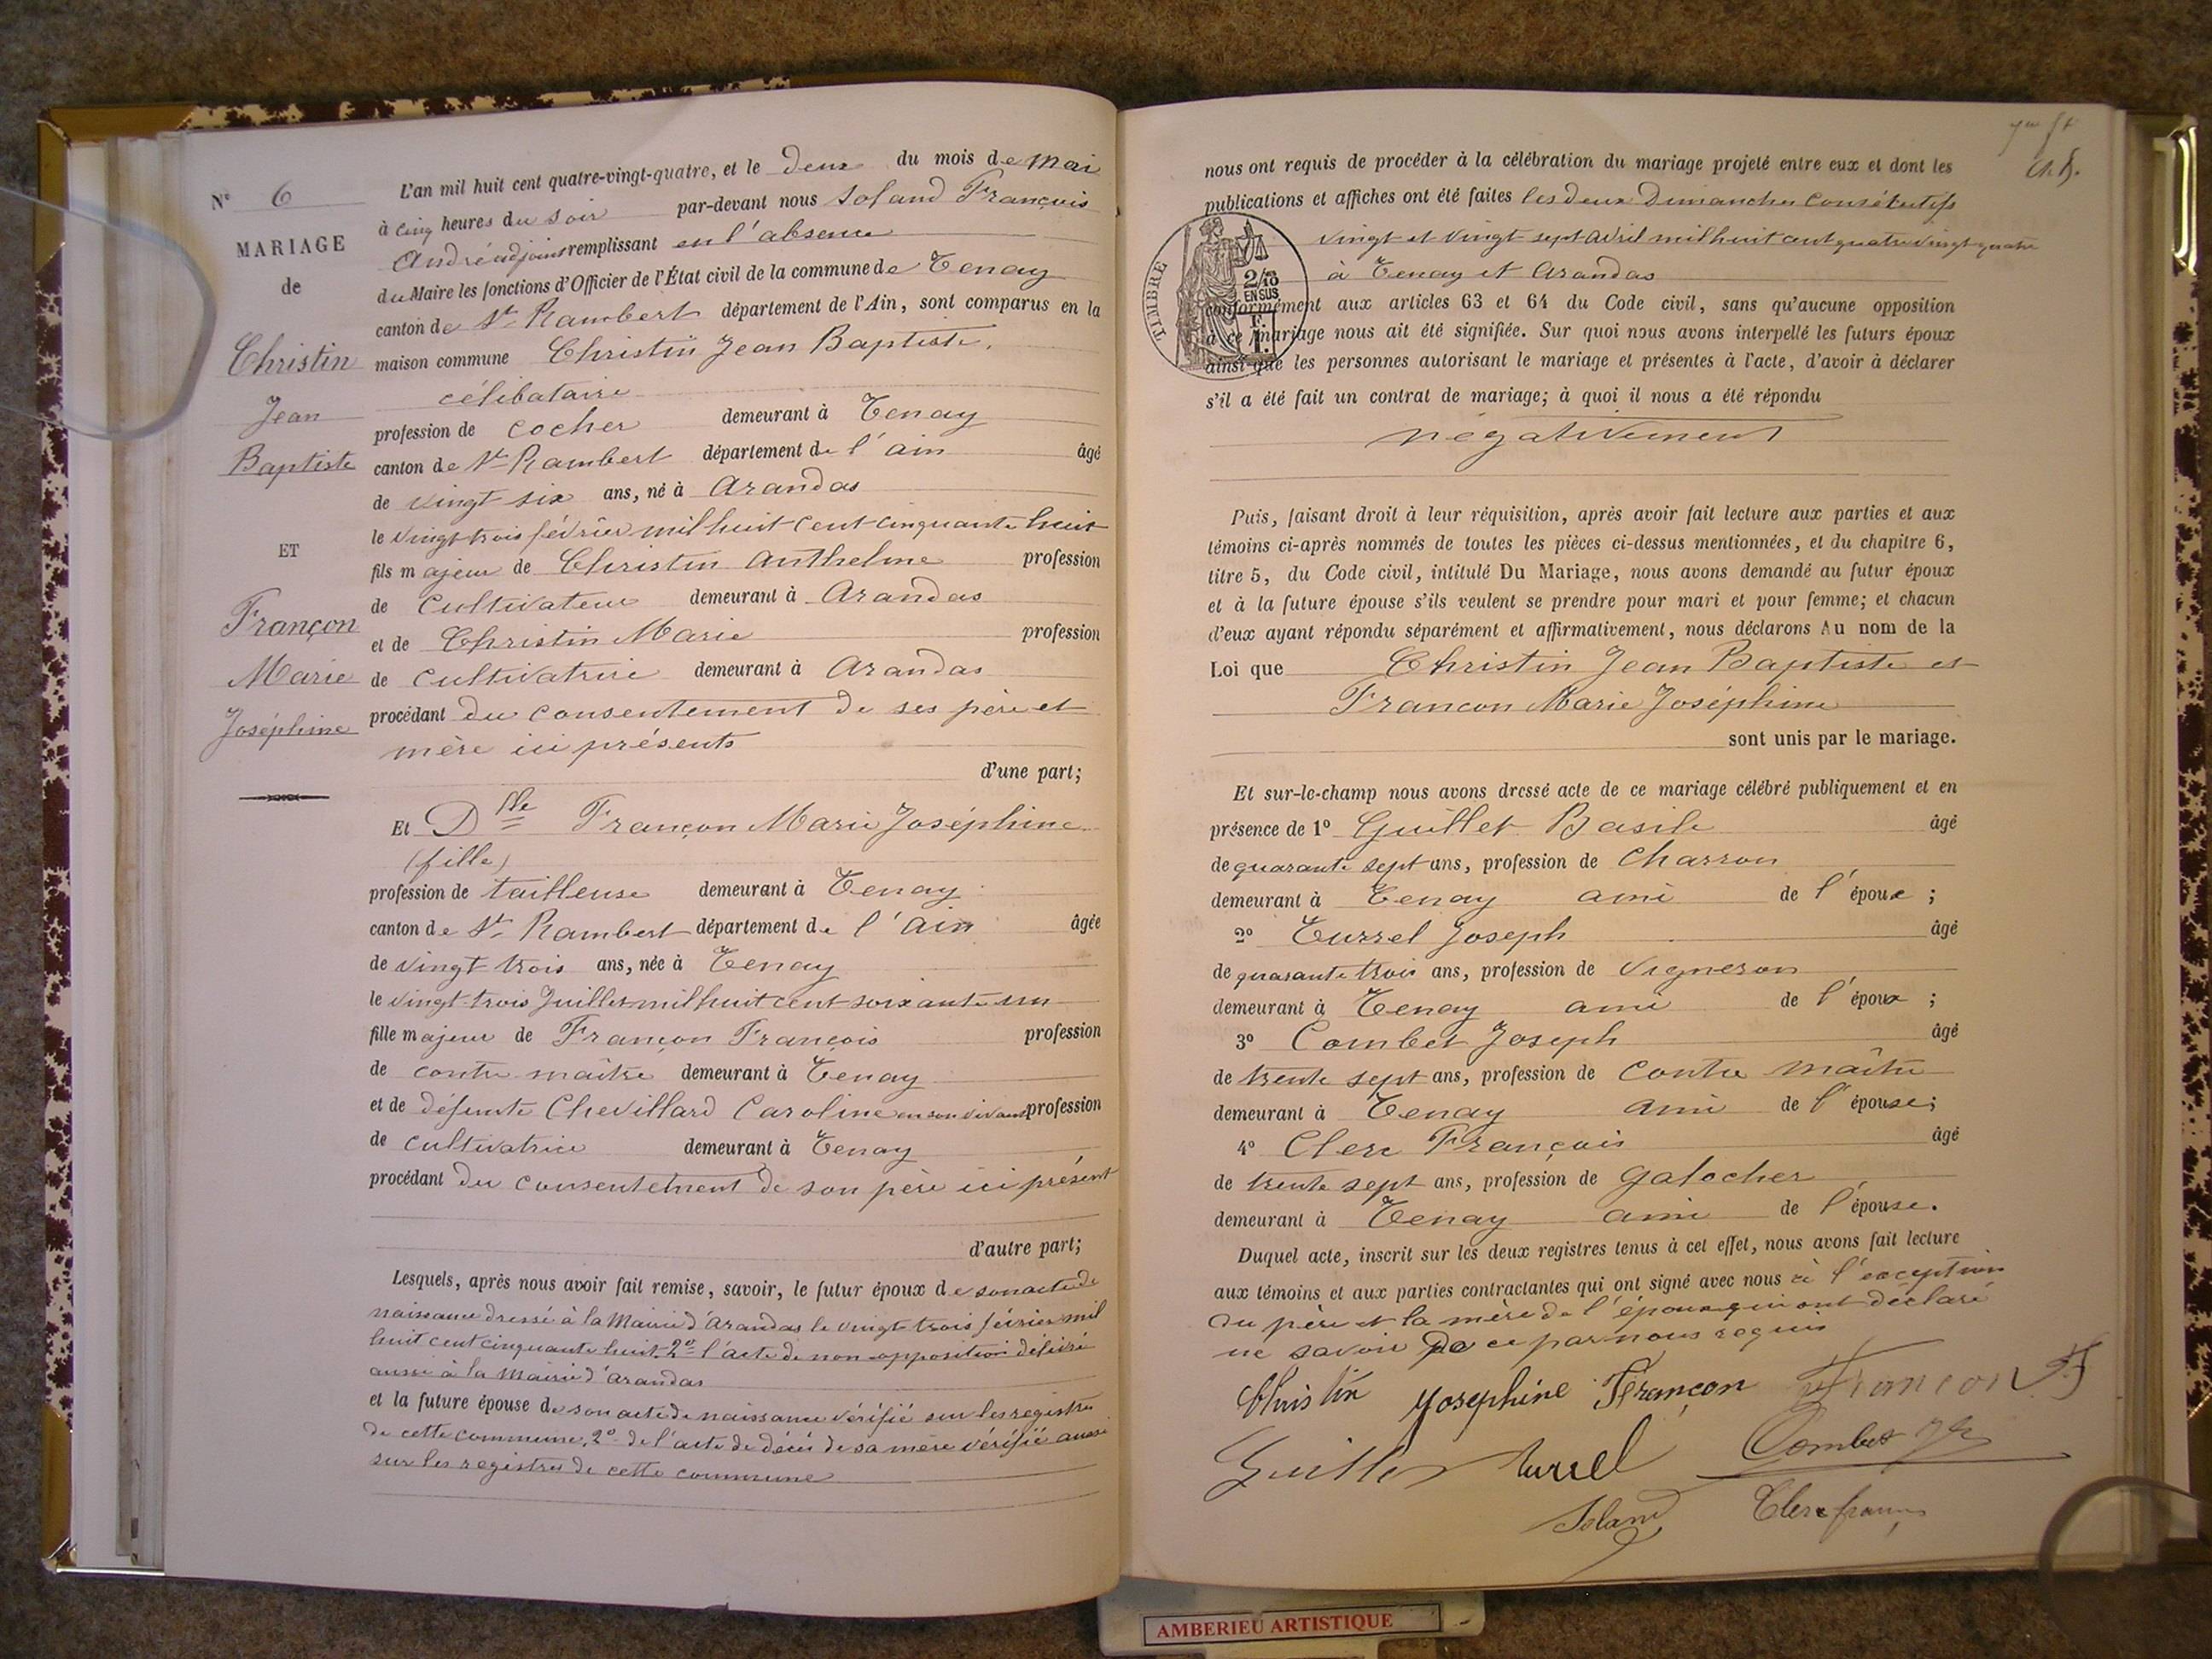 N° 6
MARIAGE
de
Christin
Jean
Baptiste
ET
Françon
Marie
Joséphine
L'an mil huit cent quatre-vingt-quatre, et le deux du mois de Mai
à cinq heures du soir par-devant nous Soland François
André adjoint remplissant en l'absence
du Maire les fonctions d'Officier de l'État civil de la commune de Tenay
canton de St Rambert département de l'Ain, sont comparus en la
maison commune Christin Jean Baptiste,
célibataire
profession de cocher demeurant à Tenay
canton de St Rambert département de l'ain âgé
de vingt six ans, né à Arandas
le vingt trois février mil huit cent cinquante huit
fils majeur de Christin Anthelme profession
de cultivateur demeurant à Arandas
et de Christin Marie profession
de cultivatrice demeurant à Arandas
procédant du consentement de ses père et
mère ici présents
d'une part;
Et Dlle Françon Marie Joséphine
(fille)
profession de tailleuse demeurant à Tenay
canton de St Rambert département de l'Ain âgée
de vingt trois ans, née à Tenay
le vingt trois Juillet mil huit cent soixante un
fille majeur de Françon François profession
de contre maître demeurant à Tenay
et de défunte Chevillard Caroline en son vivant profession
de cultivatrice demeurant à Tenay
procédant du consentement de son père ici présent
d'autre part;
Lesquels, après nous avoir fait remise, savoir, le futur époux de son acte de
naissance dressé à la Mairie d'Arandas le vingt trois février mil
huit cent cinquante huit 2° l'acte de non opposition délivré
aussi à la Mairie d'Arandas
et la future épouse de son acte de naissance vérifié sur les registres
de cette commune, 2° de l'acte de décés de sa mère vérifié aussi
sur les registres de cette commune
nous ont requis de procéder à la célébration du mariage projeté entre eux et dont les
publications et affiches ont été faites les deux Dimanches consécutifs
vingt et vingt sept avril mil huit cent quatre vingt quatre
à Tenay et Arandas
TIMBRE
2/10
EN SUS
F.
1.
conformément aux articles 63 et 64 du Code civil, sans qu'aucune opposition
à ce mariage nous ait été signifiée. Sur quoi nous avons interpellé les futurs époux
ainsi que les personnes autorisant le mariage et présentes à l'acte, d'avoir à déclarer
s'il a été fait un contrat de mariage; à quoi il nous a été répondu
négativement
Puis, faisant droit à leur réquisition, après avoir fait lecture aux parties et aux
témoins ci-après nommés de toutes les pièces ci-dessus mentionnées, et du chapitre 6,
titre 5, du Code civil, intitulé Du Mariage, nous avons demandé au futur époux
et à la future épouse s'ils veulent se prendre pour mari et pour femme; et chacun
d'eux ayant répondu séparément et affirmativement, nous déclarons Au nom de la
Loi que Christin Jean Baptiste et
Francon Marie Joséphine
sont unis par le mariage.
Et sur-le-champ nous avons dressé acte de ce mariage célébré publiquement et en
présence de 1° Guillet Basile âgé
de quarante sept ans, profession de charron
demeurant à Tenay ami de l'époux ;
2° Turrel Joseph âgé
de quarante trois ans, profession de vigneron
demeurant à Tenay ami de l'époux ;
3° Combet Joseph âgé
de trente sept ans, profession de contre maître
demeurant à Tenay ami de l'épouse;
4° Clerc François âgé
de trente sept ans, profession de galocher
demeurant à Tenay ami de l'épouse.
Duquel acte, inscrit sur les deux registres tenus à cet effet, nous avons fait lecture
aux témoins et aux parties contractantes qui ont signé avec nous à l'exception
du père et la mère de l'époux qui ont déclaré
ne savoir de ce par nous requis
Christin Josephine Françon Françon
Guillet Turrel Combet
Soland Clerc
AMBERIEU ARTISTIQUE